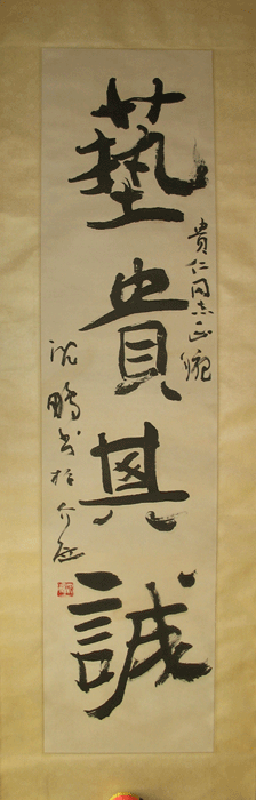 貴仁同志正腕
藝貴其誠
沈鵬书於介居